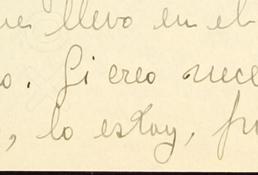 llevo en el
o. Si creo nece
, lo estoy,